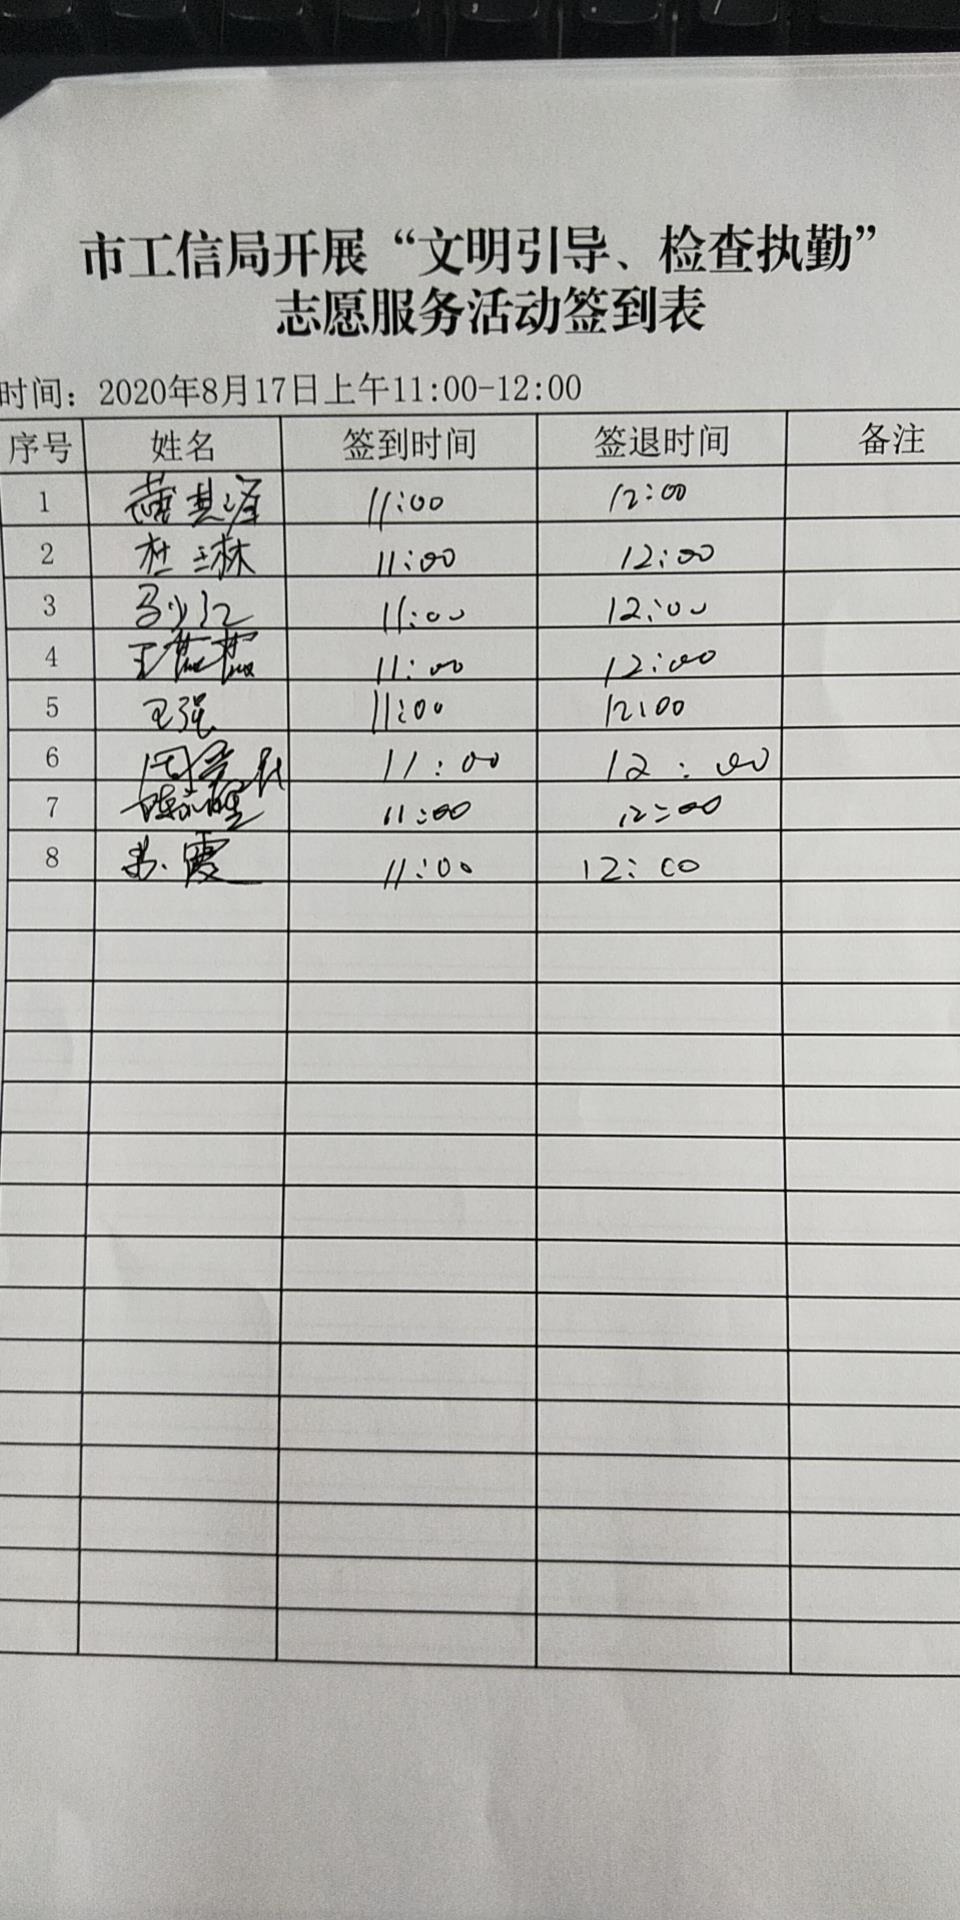 市工信局开展“文明引导、检查执勤”
志愿服务活动签到表
时间：2020年8月17日上午11:00-12:00
序号 姓名 签到时间 签退时间 备注
1 11:00 12:00
2 杜琳 11:00 12:00
3 11:00 12:00
4 王 11:00 12:00
5 王强 11:00 12:00
6 11:00 12:00
7 11:00 12:00
8 霞 11:00 12:00